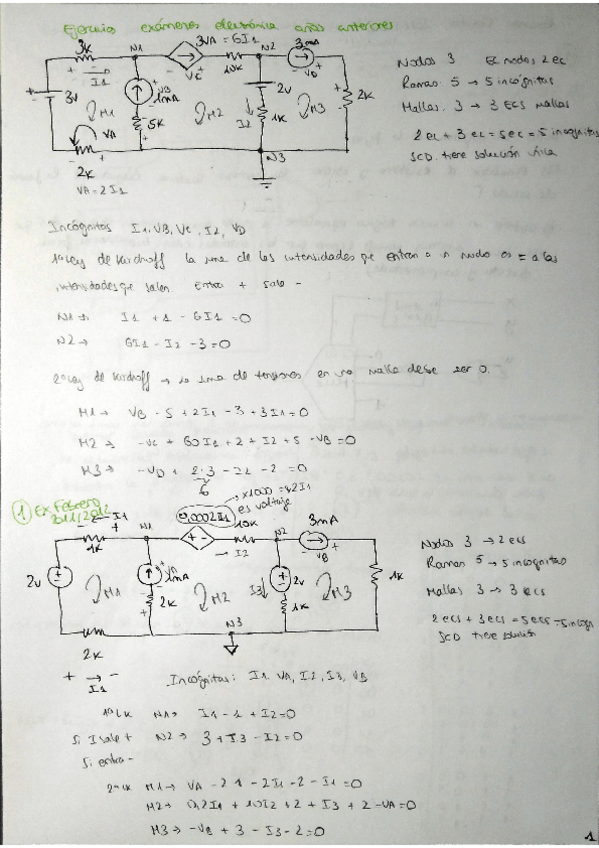 Ejercicio exámenes electrónica años anteriores
3K N1 3VA = 6I1 N2 3mA
+ I1 - Vc 10K VD
3V VB 1mA 2V 2K
M1 M2 M3
5K I2 1K
VA
2K N3
VA = 2I1
Nodos 3 Ec nodos 2 ec
Ramas 5 → 5 incógnitas
Mallas 3 → 3 ECS mallas
2 ec + 3 ec = 5 ec = 5 incognitas
SCD. tiene solución única
Incógnitas I1, VB, Vc, I2, VD
1ª Ley de Kirchoff la suma de las intensidades que entran a un nudo es = a las
intensidades que salen Entra + sale -
N1 → I1 + 1 - 6I1 = 0
N2 → 6I1 - I2 - 3 = 0
2ª Ley de Kirchoff → la suma de tensiones en una malla debe ser 0.
M1 → VB - 5 + 2I1 - 3 + 3I1 = 0
M2 → -Vc + 60I1 + 2 + I2 + 5 - VB = 0
M3 → -VD + 2·3 - I2 - 2 = 0
6
1 Ex Febrero
2011/2012
← I1 N1 0,0002I1 → x1000 = 0,2I1
es voltaje
1K 10K N2 3mA
→ I2 VB
2V VA 1mA I3 2V 1K
M1 2K M2 1K M3
N3
2K
+ → -
I1
Nodos 3 → 2 ecs
Ramas 5 → 5 incognitas
Mallas 3 → 3 ecs
2 ecs + 3 ecs = 5 ecs = 5 incogn
SCD tiene solución
Incógnitas: I1, VA, I2, I3, VB
1ª LK N1 → I1 - 1 + I2 = 0
Si I sale + N2 → 3 + I3 - I2 = 0
Si entra -
2ª LK M1 → VA - 2·1 - 2I1 - 2 - I1 = 0
M2 → 0,2I1 + 10I2 + 2 + I3 + 2 - VA = 0
M3 → -VB + 3 - I3 - 2 = 0
1